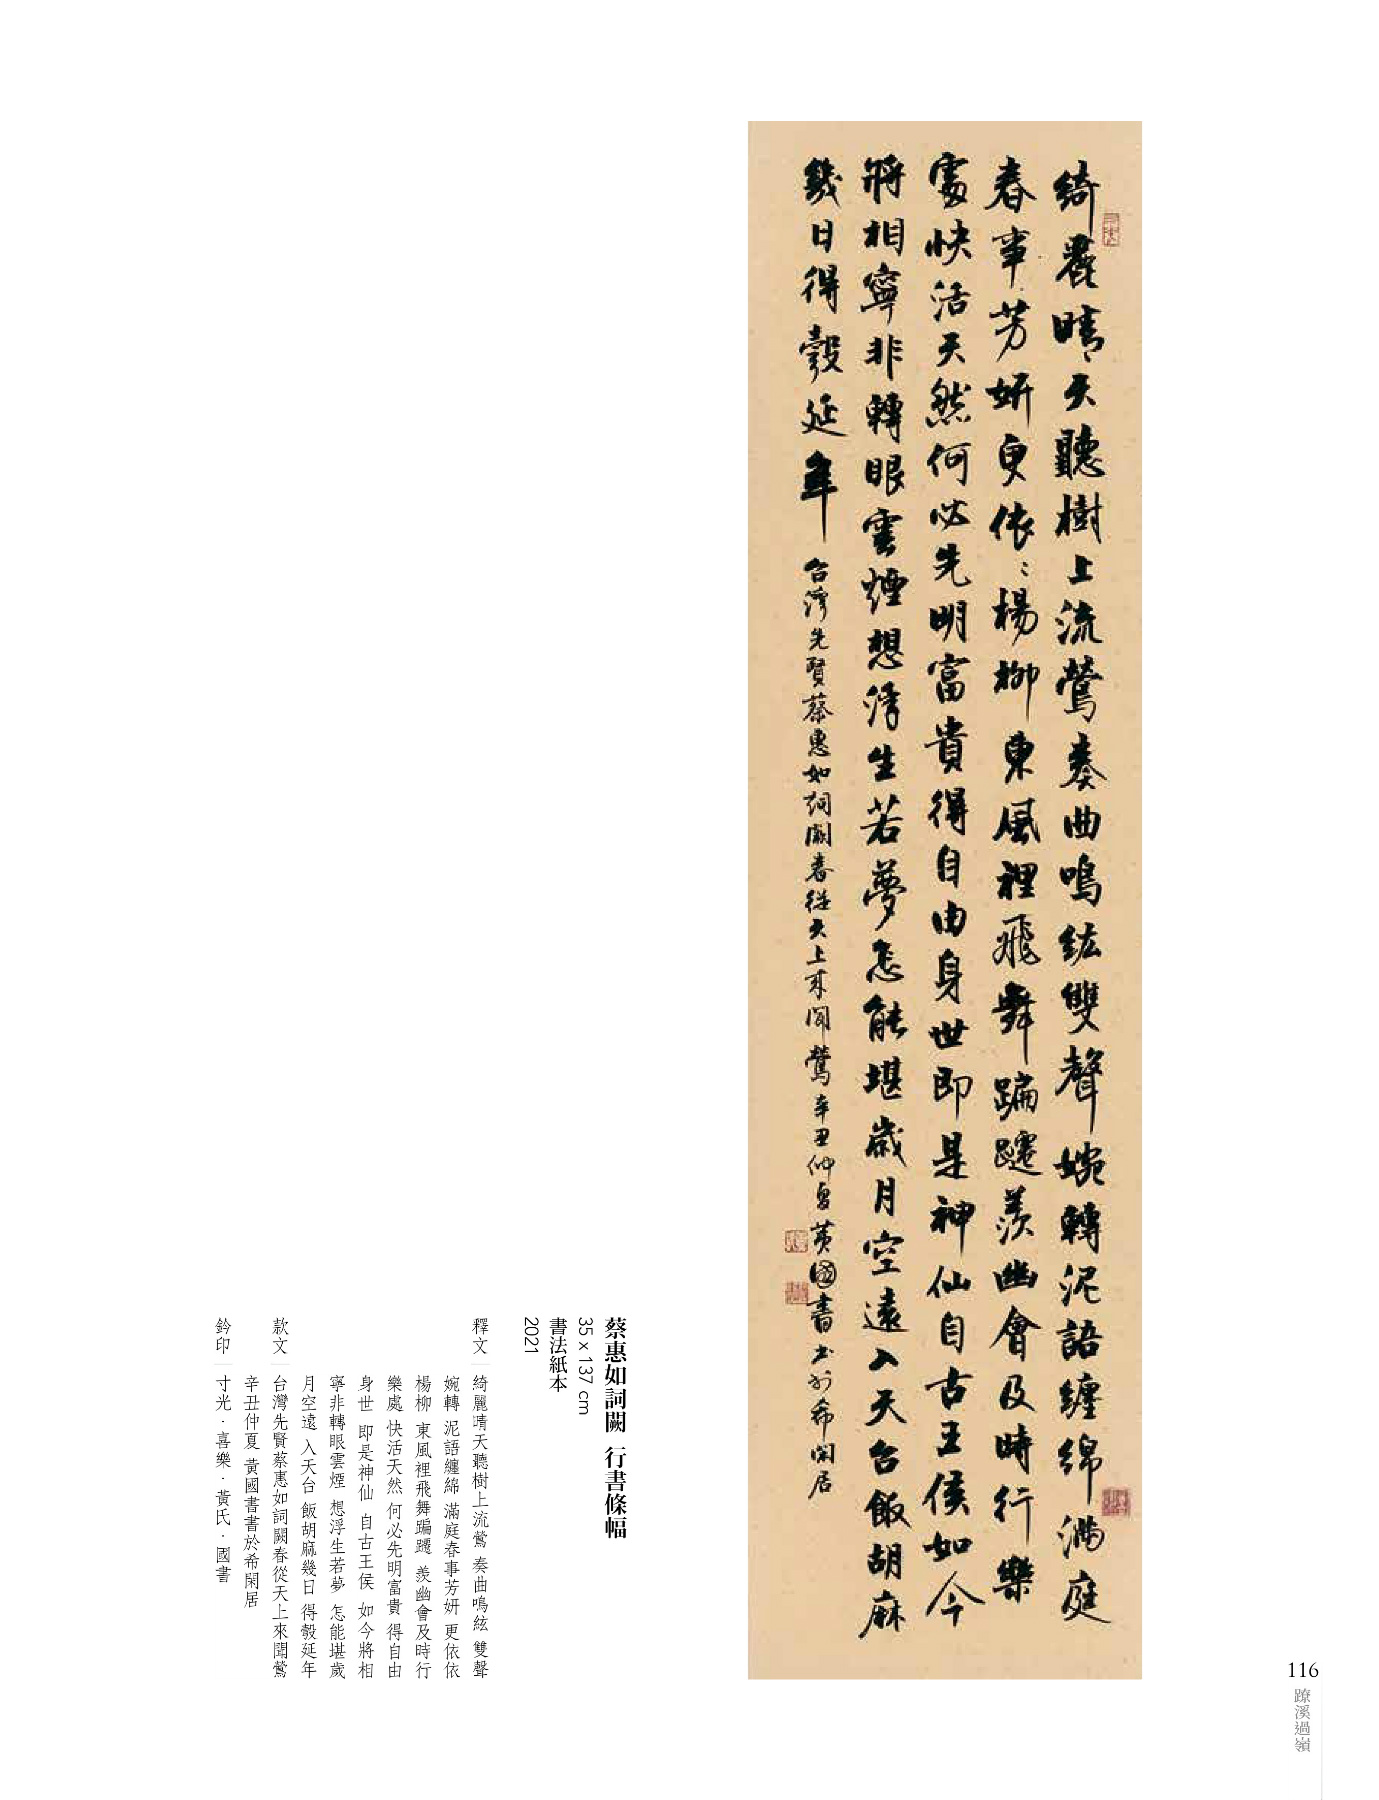 綺麗晴天聽樹上流鶯奏曲鳴絃雙聲婉轉泥語纏綿滿庭
春事芳妍更依〻楊柳東風裡飛舞蹁躚羨幽會及時行樂
處快活天然何必先明富貴得自由身世即是神仙自古王侯如今
將相寧非轉眼雲煙想浮生若夢怎能堪歲月空遠入天台飯胡麻
幾日得彀延年
台灣先賢蔡惠如詞闕春從天上來聞鶯辛丑仲夏黃國書書於希閑居
蔡惠如詞闕 行書條幅
35 x 137 cm
書法紙本
2021
釋文
綺麗晴天聽樹上流鶯 奏曲鳴絃 雙聲
婉轉 泥語纏綿 滿庭春事芳妍 更依依
楊柳 東風裡飛舞蹁躚 羨幽會及時行
樂處 快活天然 何必先明富貴 得自由
身世 即是神仙 自古王侯 如今將相
寧非轉眼雲煙 想浮生若夢 怎能堪歲
月空遠 入天台 飯胡麻幾日 得彀延年
款文
台灣先賢蔡惠如詞闕春從天上來聞鶯
辛丑仲夏 黃國書書於希閑居
鈐印
寸光·喜樂·黃氏·國書
116
蹽溪過嶺